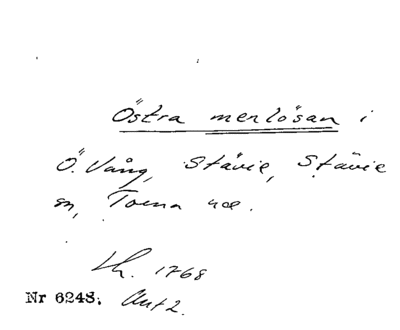 Östra menlösan i
Ö. Vång, Stävie, Stävie
sn, Torna hd.
Lh. 1768
Nr 6248. Akt 2.